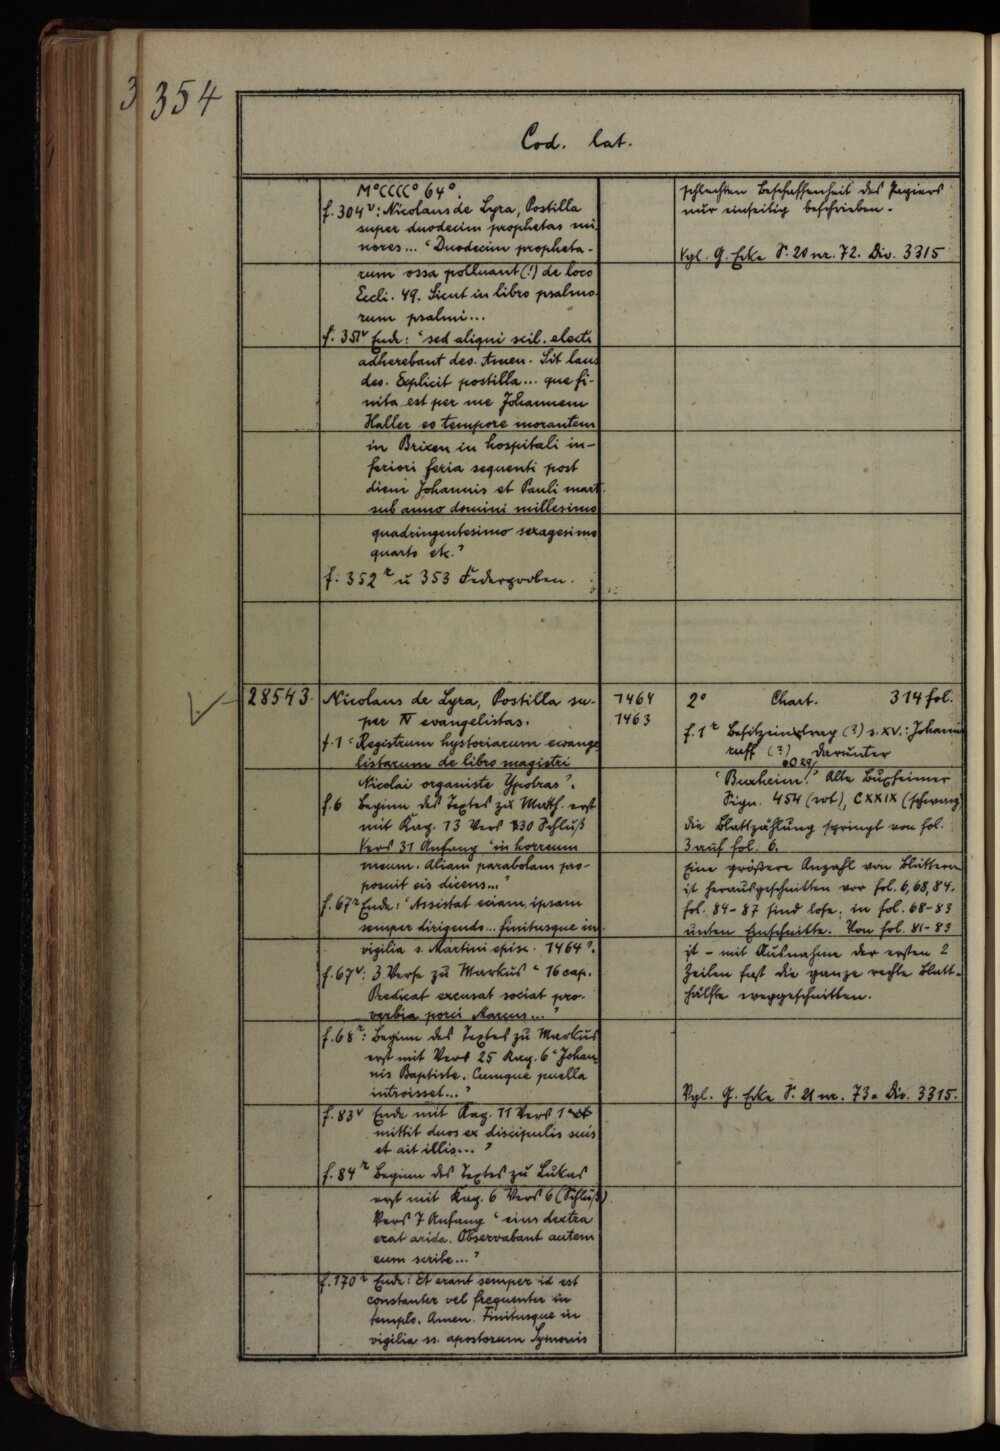 3 354
Cod. lat.
M°CCCC° 64°.
f. 304v: Nicolaus de Lyra, Postilla
super duodecim prophetas mi
nores... "Duodecim propheta-
rum ossa polluant(!) de loco
Eccli. 49. Sicut in libro psalmo
rum psalmi...
f. 351v Ende: "sed aliqui scil. electi
adherebant deo. Amen. Sit laus
deo. Explicit postilla... que fi-
nita est per me Johannem
Haller eo tempore morantem
in Brixen in hospitali in-
feriori feria sequenti post
diem Johannis et Pauli mart.
sub anno domini millesimo
quadringentesimo sexagesimo
quarto etc."
f. 352r u 353 Federproben.
schlechten Beschaffenheit des Papiers
nur einseitig beschrieben.
Vgl. G. Ecke S. 20 nr. 72. Div. 3315
28543.
Nicolaus de Lyra, Postilla su-
per IV evangelistas.
f. 1 "Registrum hystoriarum ewange
listarum de libro magistri
Nicolai organiste Ypotras".
f. 6 Beginn des Textes zu Math. erst
mit Kap. 13 Vers 30 Schluß
Vers 31 Anfang "in horreum
meum. Aliam parabolam pro-
posuit eis dicens..."
f. 67r Ende: "Assistat eciam ipsam
semper dirigendo... finitusque in
vigilia s. Martini episc. 1464".
f. 67v: 3 Verse zu Markus "16 cap.
Predicat excusat sociat pro-
verbia porci Marcus..."
f. 68r: Beginn des Textes zu Markus
erst mit Vers 25 Kap. 6 "Johan
nis Baptiste. Cumque puella
introisset..."
f. 83v Ende mit Kap. 11 Vers 1 "
mittit duos ex discipulis suis
et ait illis..."
f. 84r Beginn des Textes zu Lukas
erst mit Kap. 6 Vers 6 (Schluß)
Vers 7 Anfang "eius dextra
erat arida. Observabant autem
eum scribe..."
f. 170r Ende: Et erant semper id est
constanter vel frequenter in
templo. Amen. Finitusque in
vigilia ss. apostorum Symonis
1464
1463
2° Chart. 314 fol.
f. 1r Besitzeintrag (?) s. XV.: Johannis
ruff (?) darunter
"Buxheim." Alte Buxheimer
Sign. 454 (rot), CXXIX (schwarz)
die Blattzählung springt von fol.
3 auf fol. 6.
Eine größere Anzahl von Blättern
ist herausgeschnitten vor fol. 6, 68, 84.
fol. 84-87 sind lose. in fol. 68-83
unten Einschnitte. Von fol. 81-83
ist - mit Ausnahme der ersten 2
Zeilen fast die ganze rechte Blatt-
hälfte weggeschnitten.
Vgl. G. Ecke S. 21 nr. 73. Div. 3315.